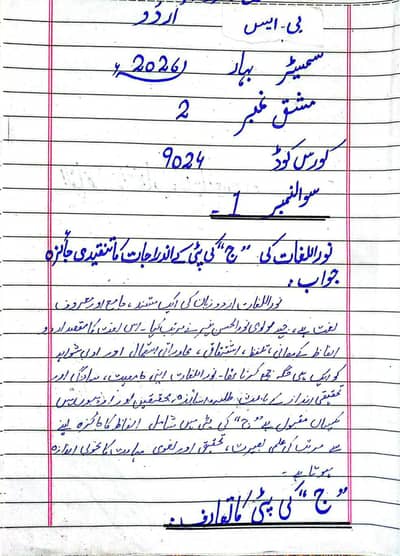 بی۔ایس اردو
سمیٹر بہار 2026ء
مشق نمبر 2
کورس کوڈ 9024
سوالنمبر 1۔
نوراللغات کی "ج" کی پٹی کے اندراجات کا تنقیدی جائزہ
جواب:
نوراللغات اردو زبان کی ایک مستند، جامع اور معروف
لغت ہے، جسے مولوی نورالحسن نیر نے مرتب کیا۔ اس لغت کا مقصد اردو
الفاظ کے معانی، تلفظ، اشتقاق، محاوراتی استعمال اور ادبی شواہد
کو ایک ہی جگہ جمع کرنا تھا۔ نوراللغات اپنی جامعیت، سادگی اور
تحقیقی انداز کے باعث طلبہ، اساتذہ، محققین اور ادیبوں میں
یکساں مقبول ہے "ج" کی پٹی میں شامل الفاظ کا جائزہ لینے
سے مرتب کی علمی بصیرت، تحقیق اور لغوی مہارت کا بخوبی اندازہ
ہوتا ہے۔
"ج" کی پٹی کا تعارف: